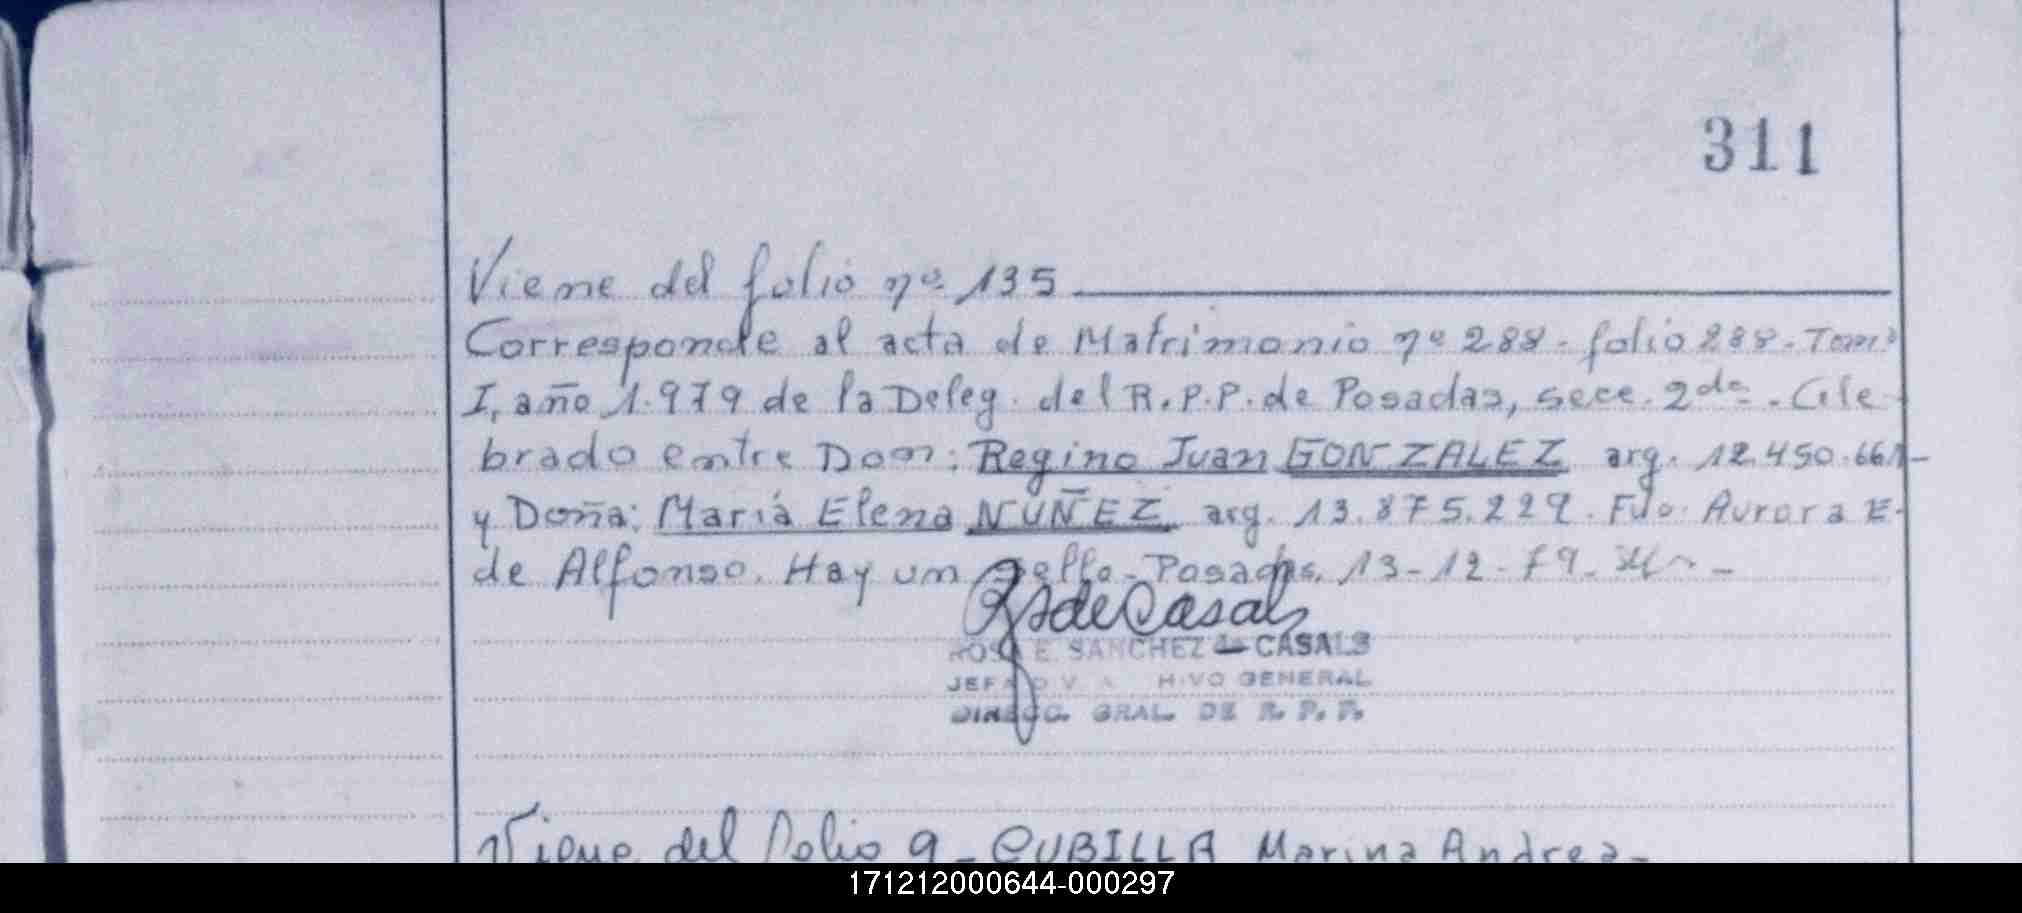 311
Viene del folio nº 135
Corresponde al acta de Matrimonio nº 288 - folio 288 - Tomo
I, año 1.979 de la Deleg. del R.P.P. de Posadas, secc. 2da. Cele-
brado entre Don: Regino Juan GONZALEZ arg. 12.450.661-
y Doña: María Elena NUÑEZ arg. 13.875.229. Fdo. Aurora E.
de Alfonso. Hay un sello - Posadas, 13-12-79.
RSdeCasals
ROSA E. SANCHEZ de CASALS
JEFA DIV. ARCHIVO GENERAL
DIRECC. GRAL. DE R. P. P.
Viene del Folio 9 - CUBILLA Marina Andrea-
171212000644-000297